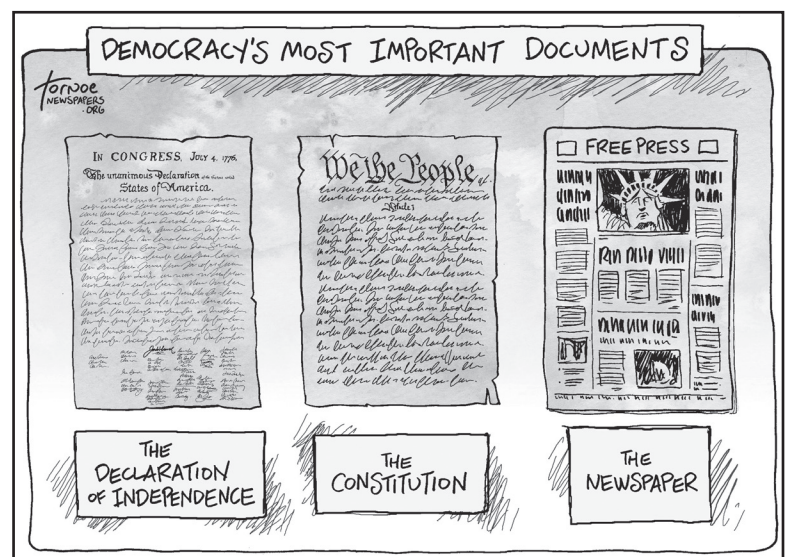 DEMOCRACY'S MOST IMPORTANT DOCUMENTS
tornoe
NEWSPAPERS
.ORG
IN CONGRESS, JULY 4, 1776.
The unanimous Declaration
States of America.
We the People
FREE PRESS
THE
DECLARATION
OF INDEPENDENCE
THE
CONSTITUTION
THE
NEWSPAPER